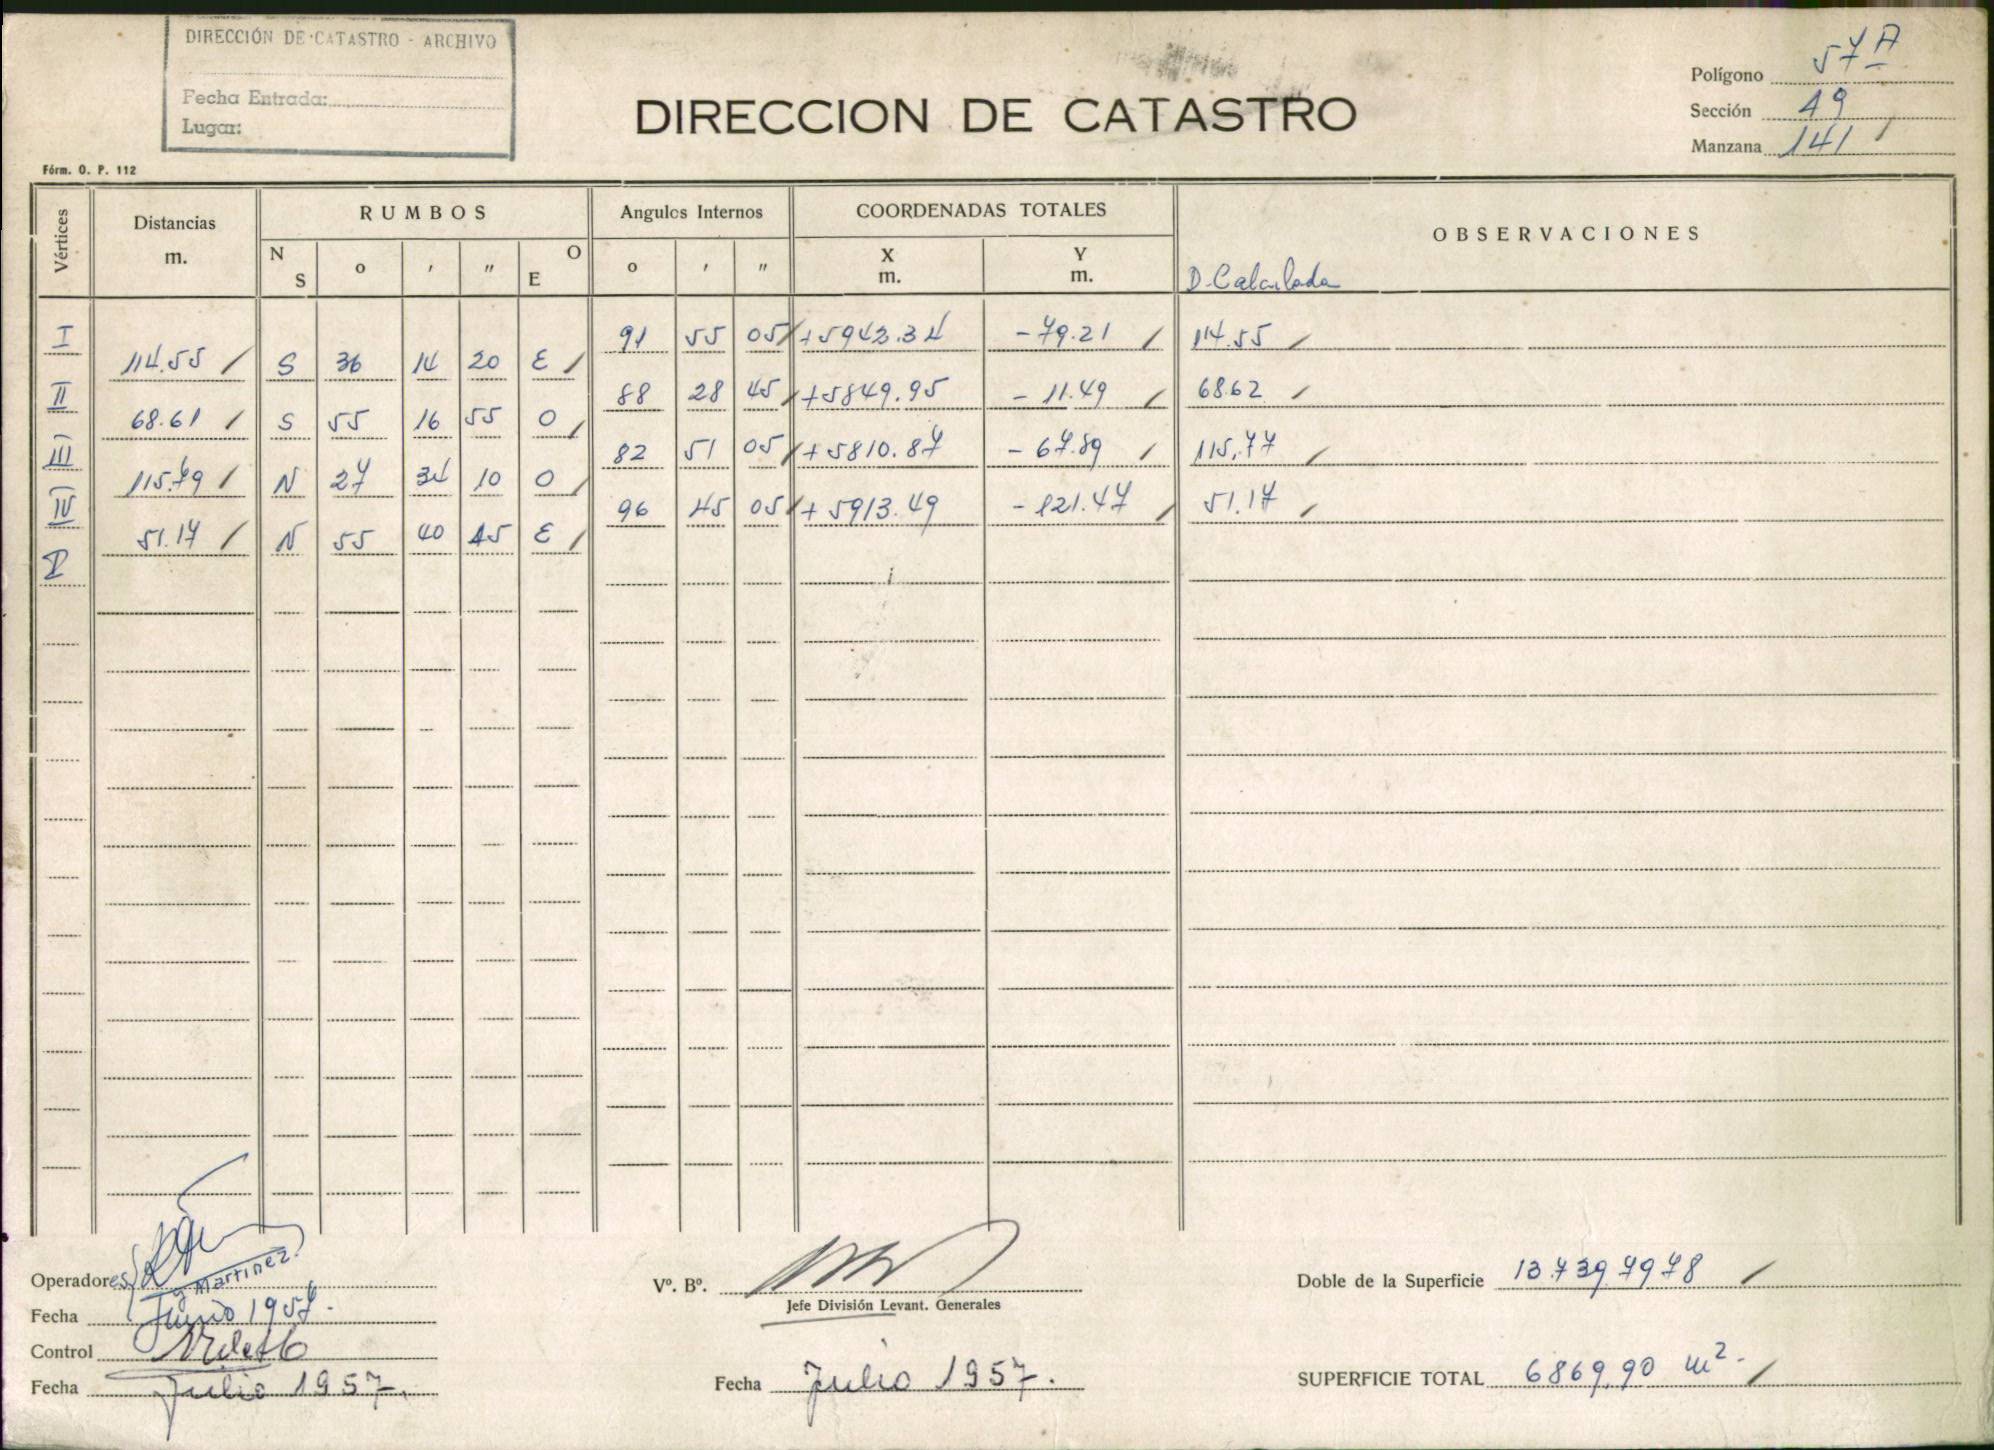 DIRECCIÓN DE CATASTRO - ARCHIVO
Fecha Entrada:
Lugar:
Fórm. O. P. 112
DIRECCION DE CATASTRO
Polígono 57A
Sección 49
Manzana 141
Vértices
Distancias m.
RUMBOS
N S o ' " O E
Angulos Internos
o ' "
COORDENADAS TOTALES
X m. Y m.
OBSERVACIONES
D. Calculada
I 91 55 05 +5942.34 -79.21 114.55
114.55 S 36 14 20 E
II 88 28 45 +5849.95 -11.49 68.62
68.61 S 55 16 55 O
III 82 51 05 +5810.87 -67.89 115,77
115.79 N 27 34 10 O
IV 96 45 05 +5913.49 -121.47 51.17
51.17 N 55 40 45 E
V
Operadores Martinez
Fecha Junio 1957.
Control
Fecha Julio 1957.
Vº. Bº.
Jefe División Levant. Generales
Fecha Julio 1957.
Doble de la Superficie 13.739,7978
SUPERFICIE TOTAL 6869,90 m2.